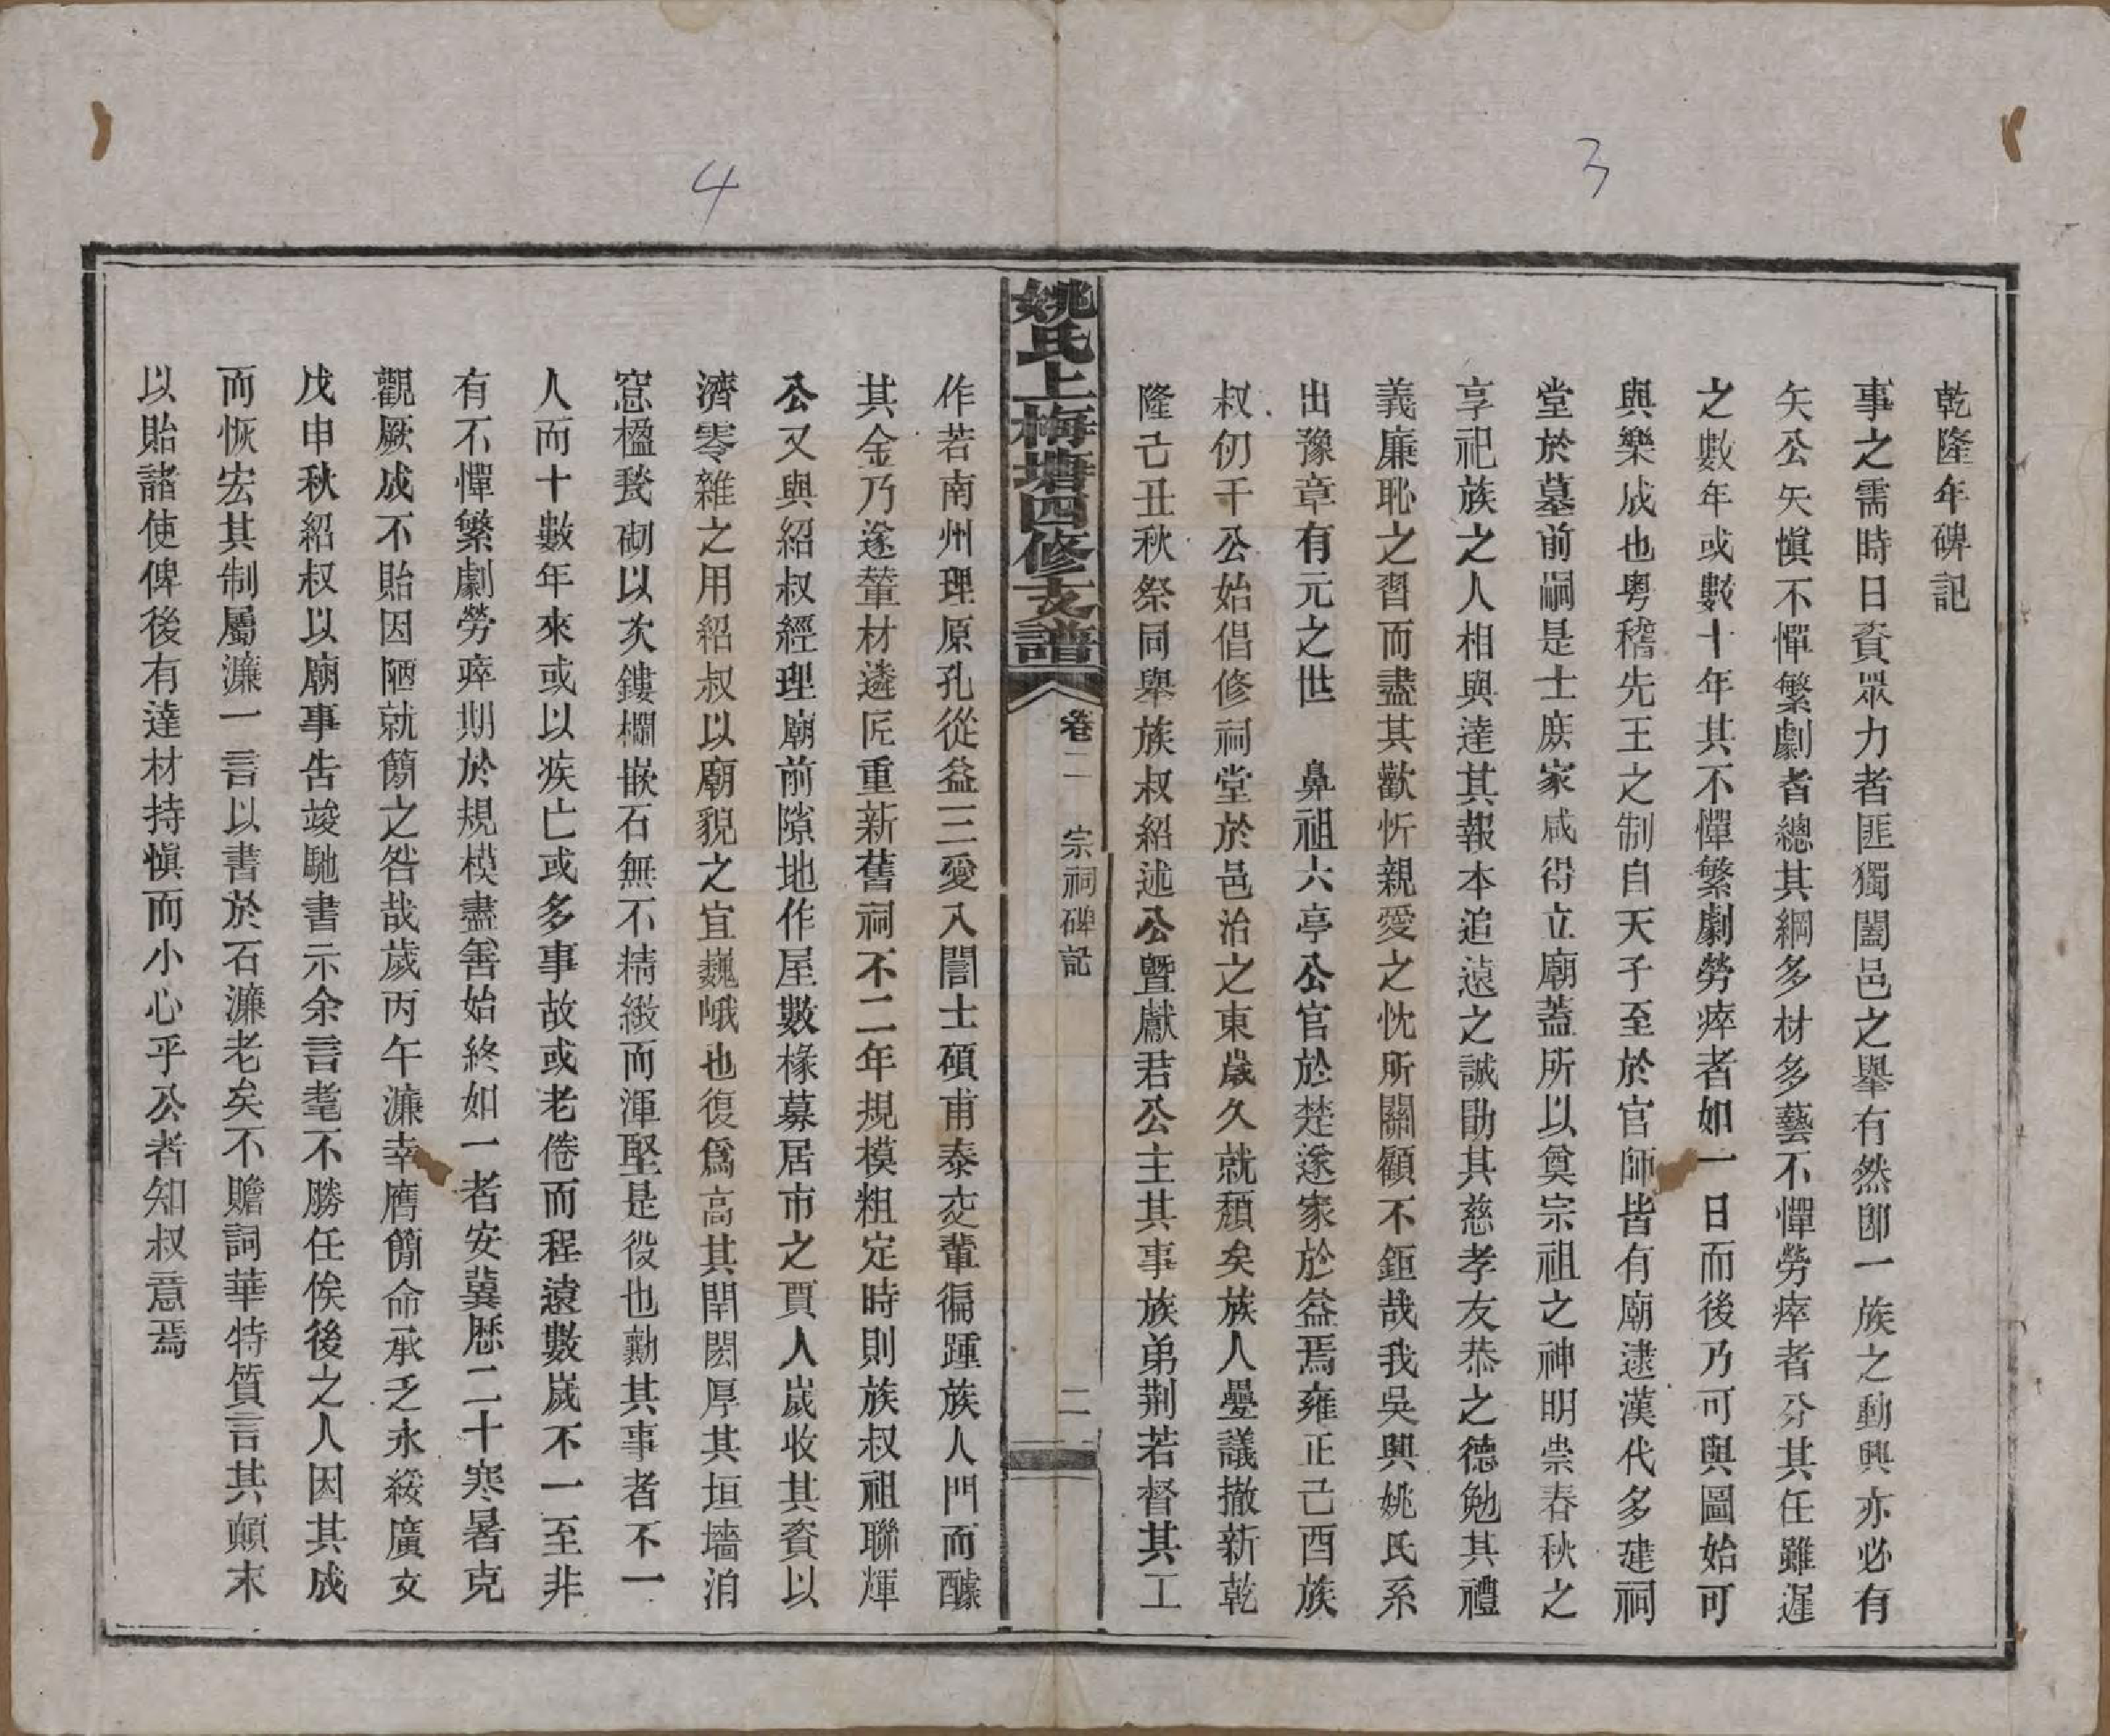 3
乾隆年碑記
事之需時日資眾力者匪獨闔邑之舉有然卽一族之動興亦必有
矢公矢愼不憚繁劇者總其綱多材多藝不憚勞瘁者分其任雖遲
之數年或數十年其不憚繁劇勞瘁者如一日而後乃可與圖始可
與樂成也粤稽先王之制自天子至於官師皆有廟逮漢代多建祠
堂於墓前嗣是士庶家咸得立廟蓋所以奠宗祖之神明崇春秋之
享祀族之人相與達其報本追遠之誠勖其慈孝友恭之德勉其禮
義廉恥之習而盡其歡忻親愛之忱所關顧不鉅哉我吳興姚氏系
出豫章有元之世　鼻祖六亭公官於楚遂家於益焉雍正己酉族
叔仞千公始倡修祠堂於邑治之東歲久就頹矣族人疊議撤新乾
隆己丑秋祭同舉族叔紹述公暨獻君公主其事族弟荆若督其工
姚氏上梅塘四修支譜
卷二　宗祠碑記　二
4
作若南州理原孔從益三愛入誾士碩甫泰交輩徧踵族人門而醵
其金乃遂輦材遴匠重新舊祠不二年規模粗定時則族叔祖聯煇
公又與紹叔經理廟前隙地作屋數椽募居市之賈人歲收其資以
濟零雜之用紹叔以廟貌之宜巍峨也復爲高其閈閎厚其垣墻消
窓楹甃砌以次鏤欄嵌石無不精緻而渾堅是役也勷其事者不一
人而十數年來或以疾亡或多事故或老倦而程遠數嵗不一至非
有不憚繁劇勞瘁期於規模盡善始終如一者安冀歷二十寒暑克
觀厥成不貽因陋就簡之咎哉歲丙午濂幸膺簡命承乏永綏廣文
戊申秋紹叔以廟事告竣馳書示余言耄不勝任俟後之人因其成
而恢宏其制屬濂一言以書於石濂老矣不贍詞華特質言其顛末
以貽諸使俾後有達材持愼而小心乎公者知叔意焉